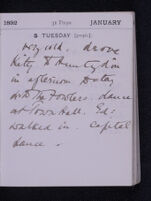 1892 31 Days. JANUARY
5 TUESDAY [5-361].
Very cold. drove
Kitty to Huntington
in afternoon to stay
with The Fowlers. dance
at Town Hall. Ed:
walked in. Capital
dance.